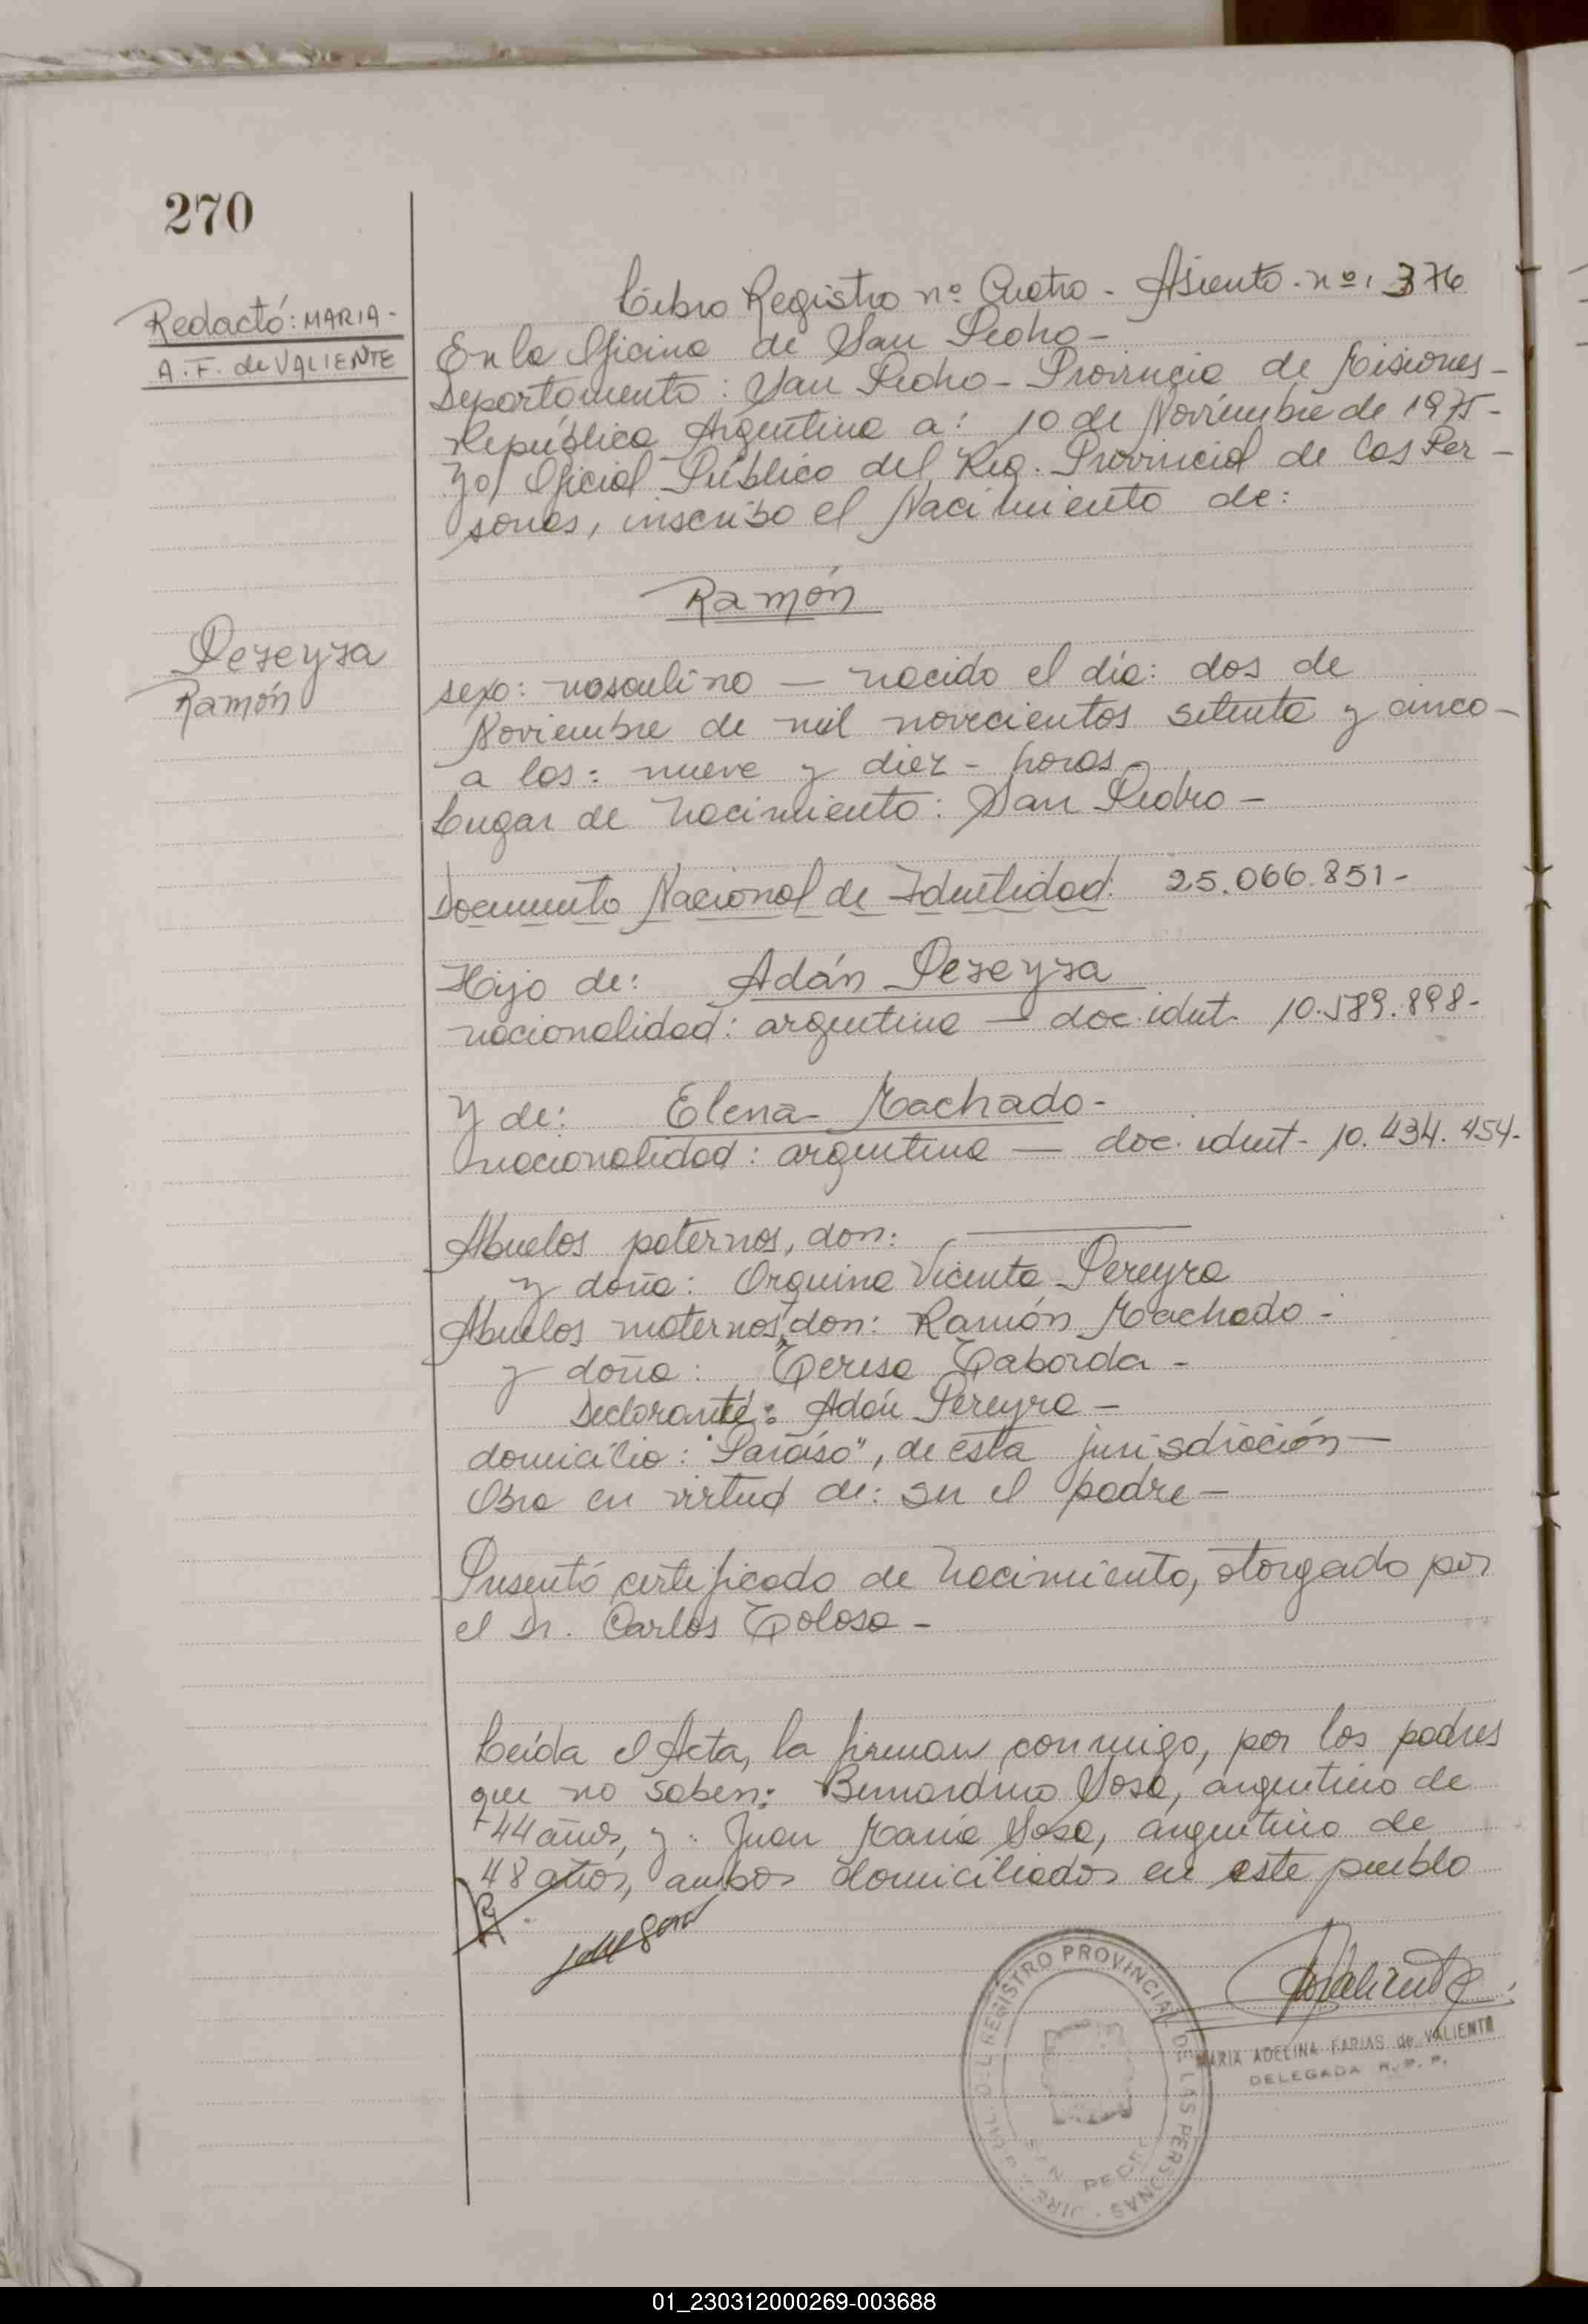 270
Redactó: MARIA -
A. F. de VALIENTE
Libro Registro nº Cuatro - Asiento - nº 376
En la Oficina de San Pedro -
Departamento: San Pedro - Provincia de Misiones -
República Argentina a: 10 de Noviembre de 1975 -
Yo, Oficial Público del Reg. Provincial de las Per -
sonas, inscribo el Nacimiento de:
Ramón
Pereyra
Ramón
sexo: masculino — nacido el día: dos de
Noviembre de mil novecientos setenta y cinco -
a las: nueve y diez - horas -
Lugar de nacimiento: San Pedro -
Documento Nacional de Identidad: 25.066.851 -
Hijo de: Adán Pereyra
nacionalidad: argentina — doc. ident. 10.589.898 -
Y de: Elena Machado -
nacionalidad: argentina — doc. ident - 10.434.454 -
Abuelos paternos, don: ———
y doña: Orquina Vicenta Pereyra
Abuelos maternos, don: Ramón Machado -
y doña: Teresa Taborda -
Declarante: Adán Pereyra -
domicilio: "Paraíso", de esta jurisdicción —
Obra en virtud de: ser el padre -
Presentó certificado de nacimiento, otorgado por
el Dr. Carlos Tolosa -
Leída el Acta, la firman conmigo, por los padres
que no saben: Bernardino Sosa, argentino de
44 años, y: Juan María Sosa, argentino de
48 años, ambos domiciliados en este pueblo
DEL REGISTRO PROVINCIAL DE LAS PERSONAS
SAN PEDRO
MARIA ADELINA FARIAS de VALIENTE
DELEGADA R. P. P.
01_230312000269-003688